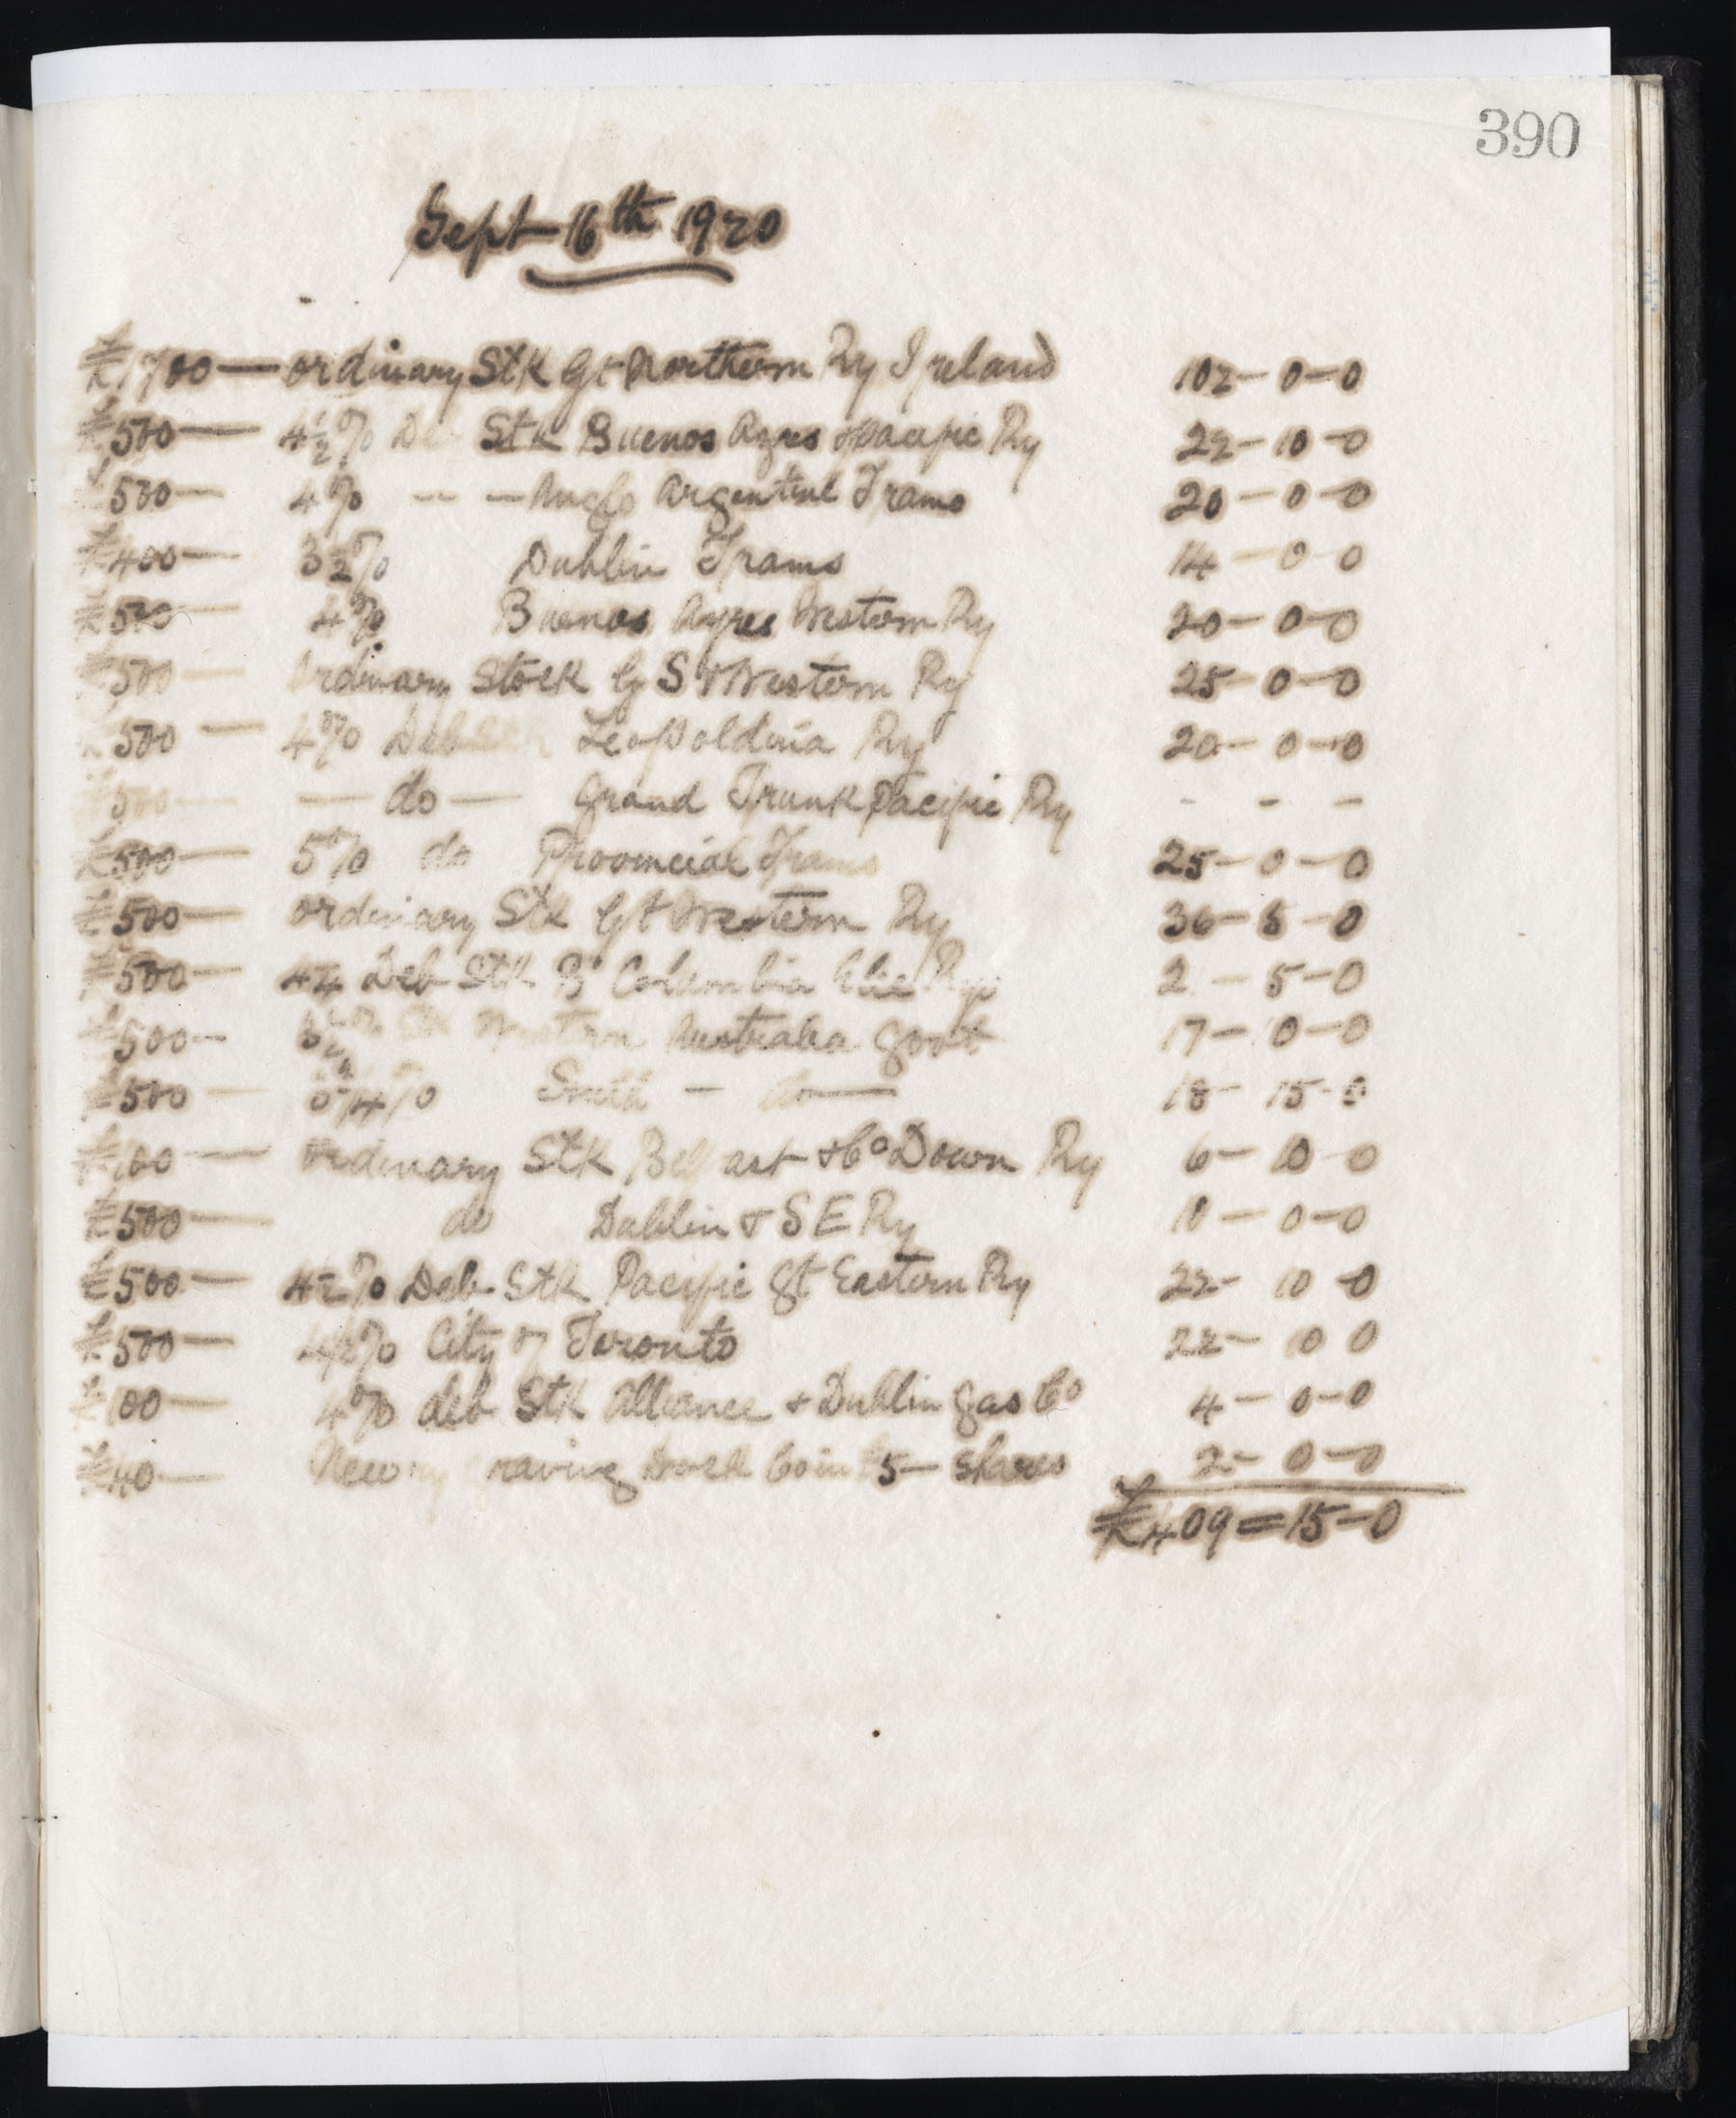 390
Sept 16th 1920
£1700 — ordinary Stk Gt Northern Ry Ireland 102 - 0 - 0
£500 — 4½% Deb Stk Buenos Ayres & Pacific Ry 22 - 10 - 0
£500 — 4% — — Anglo Argentine Trams 20 - 0 - 0
£400 — 3½% Dublin Trams 14 - 0 0
£500 — 4% Buenos Ayres Western Ry 20 - 0 - 0
£500 — ordinary Stock G S & Western Ry 25 - 0 - 0
£500 — 4% Deb Stk Leopoldina Ry 20 - 0 - 0
£500 — — do — Grand Trunk Pacific Ry - - -
£500 — 5% do Provincial Trams 25 - 0 - 0
£500 — ordinary Stk Gt Western Ry 36 - 5 - 0
£500 — 4¼ Deb Stk B Columbia Elec Rys 2 - 5 - 0
£500 - 3½% Stk Western Australia Govt 17 - 10 - 0
£500 — ¾% South - do — 18 - 15 - 0
£100 — ordinary Stk Belfast & Co Down Ry 6 - 10 0
£500 — do Dublin & S E Ry 10 - 0 - 0
£500 — 4½% Deb Stk Pacific Gt Eastern Ry 22 - 10 - 0
£500 — 4½% City of Toronto 22 - 10 0
£100 — 4% deb Stk Alliance & Dublin Gas Co 4 - 0 - 0
£40 — Newry Graving Dock Co in £5 — Shares 2 - 0 - 0
£409 = 15 - 0